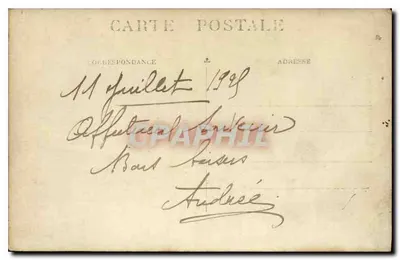 CARTE POSTALE
CORRESPONDANCE
ADRESSE
11 Juillet 1925
Affectueux Souvenir
CPAPHIL
Bons baisers
Andrée